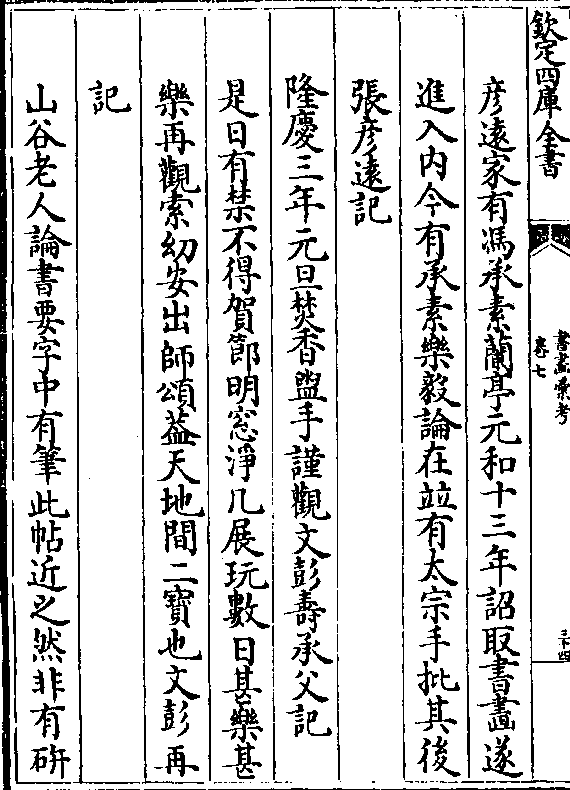 欽定四庫全書
書畫彙考
卷七
三十四
彦遠家有馮承素蘭亭元和十三年詔取書畫遂
進入内今有承素樂毅論在竝有太宗手批其後
張彦遠記
隆慶三年元旦焚香盥手謹觀文彭壽承父記
是日有禁不得賀節明窓淨几展玩數日其樂甚
樂再觀索幼安出師頌葢天地間二寳也文彭再
記
山谷老人論書要字中有筆此帖近之然非有硏